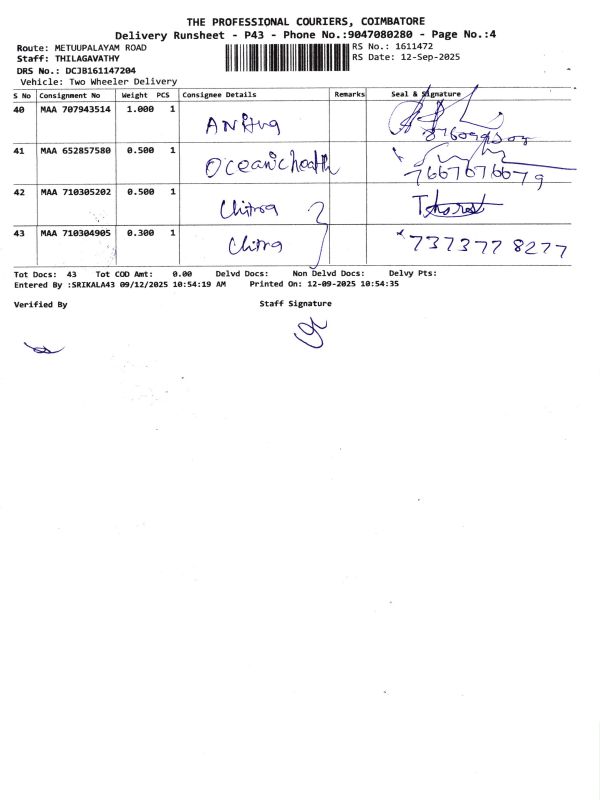 THE PROFESSIONAL COURIERS, COIMBATORE
Delivery Runsheet - P43 - Phone No.:9047080280 - Page No.:4
Route: METUUPALAYAM ROAD
RS No.: 1611472
Staff: THILAGAVATHY
RS Date: 12-Sep-2025
DRS No.: DCJB161147204
Vehicle: Two Wheeler Delivery
S No Consignment No Weight PCS Consignee Details Remarks Seal & Signature
40 MAA 707943514 1.000 1
41 MAA 652857580 0.500 1 Oceanic health 7667676679
42 MAA 710305202 0.500 1 Chitra
43 MAA 710304905 0.300 1 Chitra 7373778277
Tot Docs: 43 Tot COD Amt: 0.00 Delvd Docs: Non Delvd Docs: Delvy Pts:
Entered By :SRIKALA43 09/12/2025 10:54:19 AM Printed On: 12-09-2025 10:54:35
Verified By Staff Signature